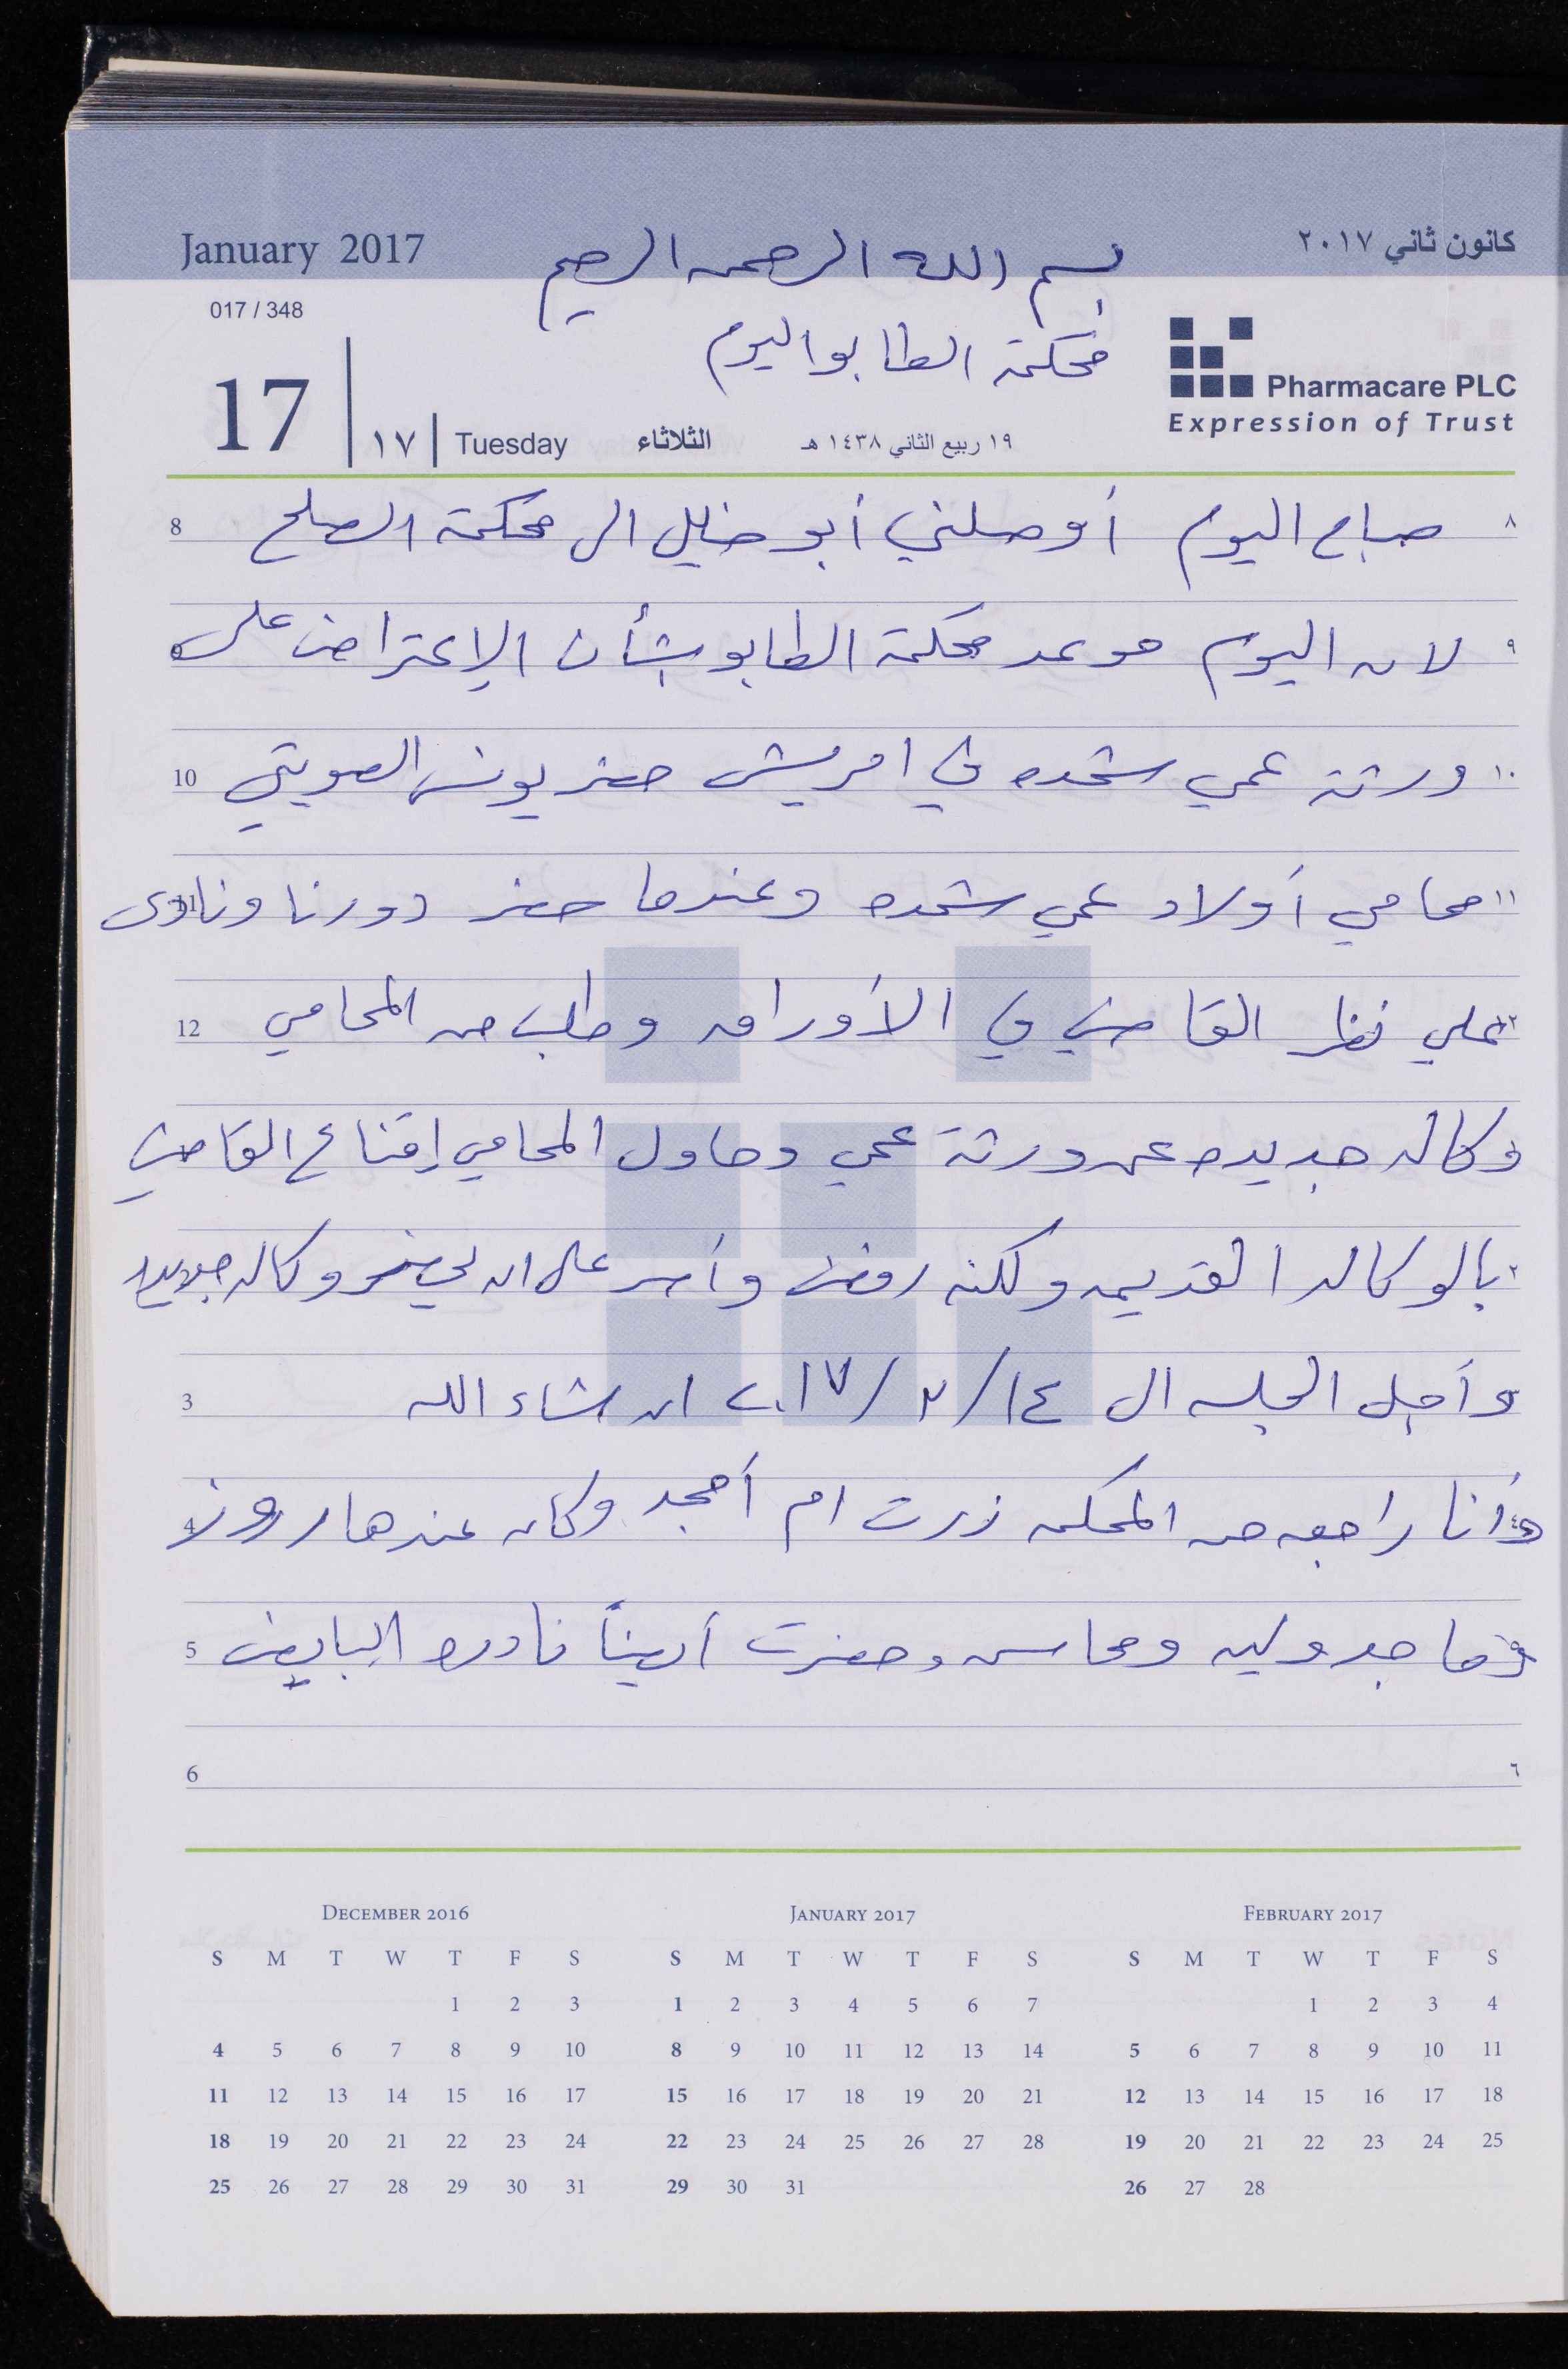 January 2017
بسم الله الرحمن الرحيم
كانون ثاني ٢٠١٧
017 / 348
محكمة الطابو اليوم
Pharmacare PLC
Expression of Trust
17 ١٧ Tuesday الثلاثاء ١٩ ربيع الثاني ١٤٣٨ هـ
8 صباح اليوم أوصلني أبو خليل الى محكمة الصلح ٨
9 لان اليوم موعد محكمة الطابو بشأن الإعتراض على ٩
10 ورثة عمي شحده في امريش حضر يونس الصويتي ١٠
11 محامي أولاد عمي شحده وعندما حضر دورنا ونادى ١١
12 علي نظر القاضي في الأوراق وطلب من المحامي ١٢
وكاله جديده عن ورثة عمي وحاول المحامي إقناع القاضي
بالوكاله القديمه ولكنه رفض وأسر على ان يحضر وكاله جديده ٢
3 وأجل الجلسه الى ١٤/٢/٢٠١٧ ان شاء الله
4 وأنا راجعه من المحكمه زرت ام أمجد وكان عندها
5 وماجدولين ومحاسن وحضرت أيضاً نادره البايض
6 ٦
December 2016
S M T W T F S
1 2 3
4 5 6 7 8 9 10
11 12 13 14 15 16 17
18 19 20 21 22 23 24
25 26 27 28 29 30 31
January 2017
S M T W T F S
1 2 3 4 5 6 7
8 9 10 11 12 13 14
15 16 17 18 19 20 21
22 23 24 25 26 27 28
29 30 31
February 2017
S M T W T F S
1 2 3 4
5 6 7 8 9 10 11
12 13 14 15 16 17 18
19 20 21 22 23 24 25
26 27 28